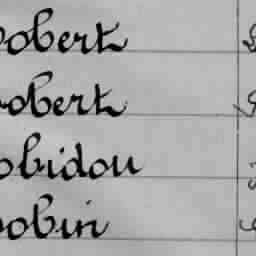 Robert
Robert
Robidou
Robin